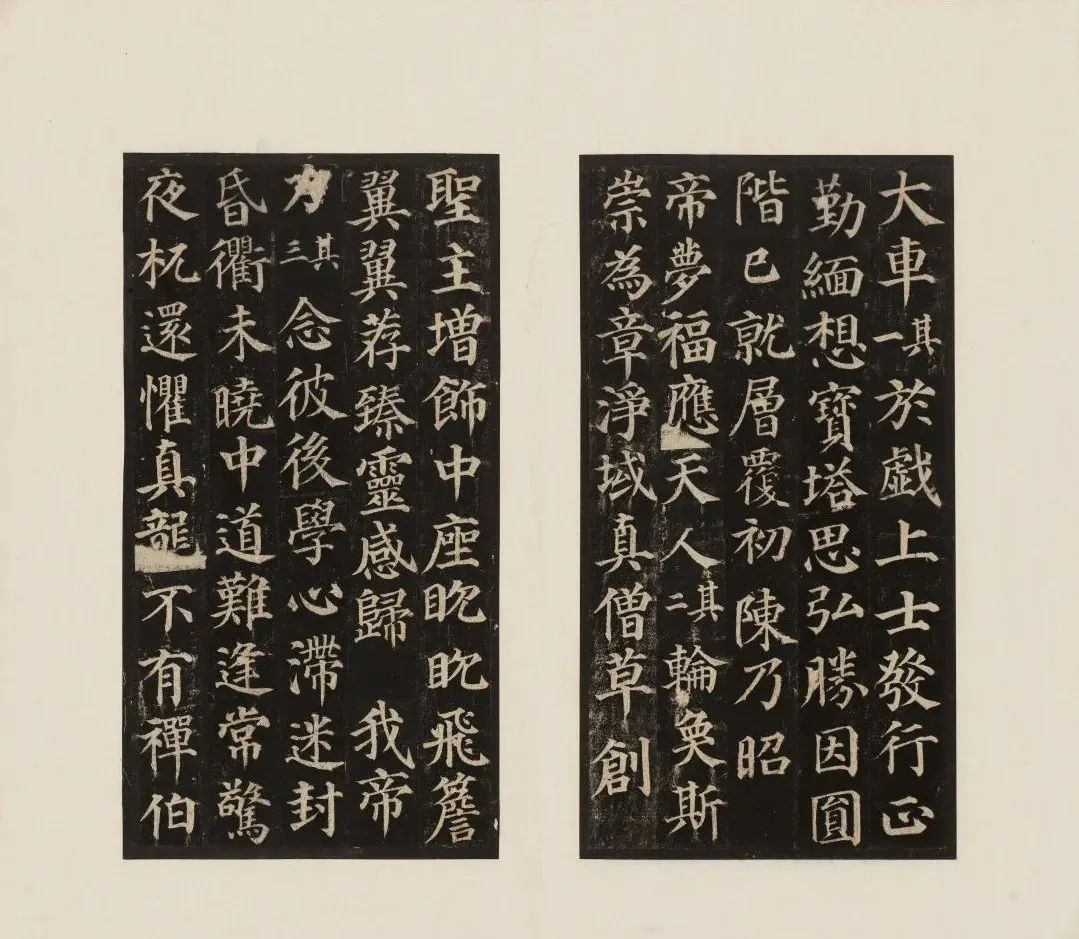 大車其一於戯上士發行正
勤緬想寶塔思弘勝因圓
階已就層覆初陳乃昭
帝夢福應天人其二輪奐斯
崇為章淨域真僧草創
聖主增飾中座眈眈飛簷
翼翼荐臻靈感歸 我帝
力其三念彼後學心滯迷封
昏衢未曉中道難逢常驚
夜杌還懼真龍不有禪伯